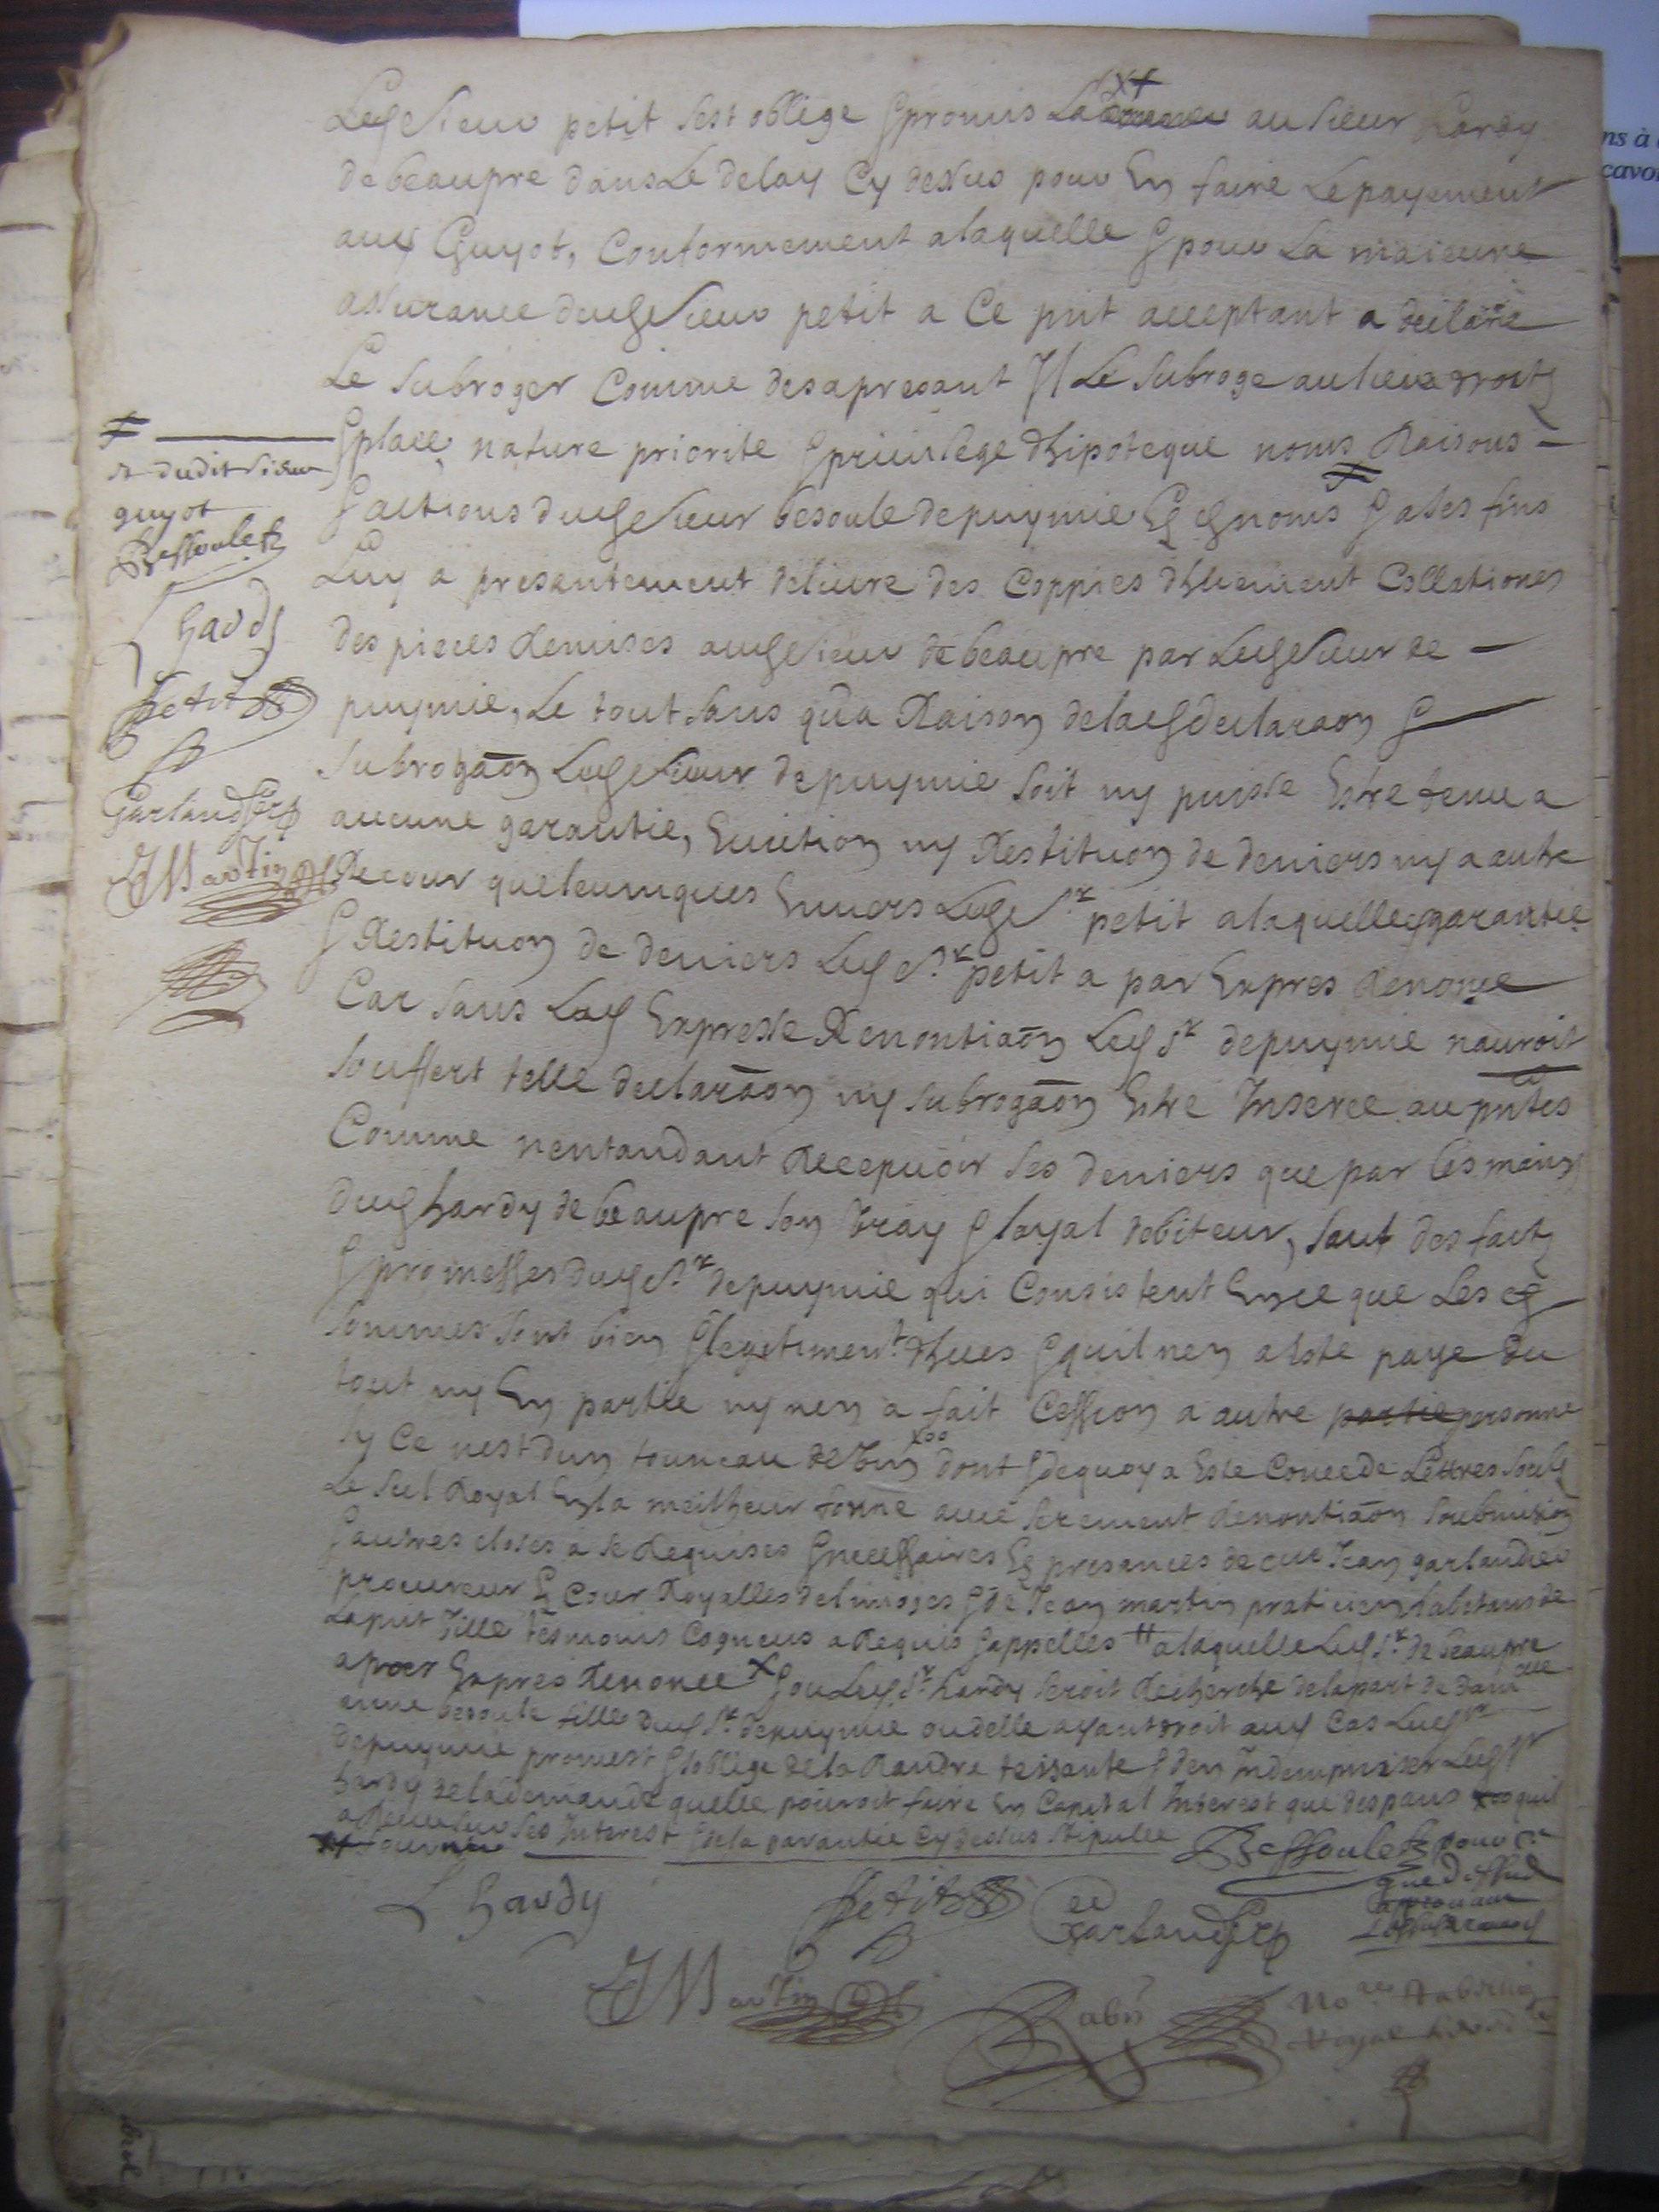 Led sieur petit sest oblige & promis La au sieur hardy
de beaupre dans Le delay Cy dessus pour En faire Le payement
aud Guyot, Conformement a laquelle & pour La maieure
assurance dudit sieur petit a Ce pnt acceptant a declaré
Le subroger Comme des apresant Il Le subroge au lieu droits
& place nature priorite & priuilege dhipoteque noms Raisons
& actions dudit sieur besoule de puymie Es noms & a ses fins
Luy a presantement deliure des Coppies dhuement Collationes
des pieces Remises aud sieur de beaupre par Led sieur de
puymie, Le tout sans qua Raison de lad declaraon &
subrogaon Led sieur de puymie soit ny puisse Estre tenu a
aucune garantie, Euiction ny Restituon de deniers ny a autre
Recour quelcumques Enuers Led Sr petit a laquelle garantie
& Restituon de deniers Led Sr petit a par Expres Renonce
Car sans Lad Expresse Renontiaon Led Sr de puymie nauroit
souffert telle declaraon ny subrogaon Estre Inseree au pntes
Comme nentandant Recepuoir ses deniers que par les mains
dud hardy de beaupre son Vray & loyal debiteur, sauf des faits
& promesses dud Sr de puymie qui Consistent En ce que Les d
sommes sont bien & legitiment dhues & quil nen a este paye du
tout ny En partie ny nen a fait Cession a autre partie personne
sy Ce nest dun tonneau de Vin xoo dont & de quoy a Este Concede Lettres soubs
Le scel Royal En la meilheur forme auec serement Renontiaon soubmission
& autres closes a ce Requises & necessaires Es presances de Jean garlandier
procureur Es Cour Royalles de limoges & de Jean martin praticien habitans de
La pnt Ville tesmoins Cogneus a Requis & appelles # a laquelle Led Sr de beaupre
a par Expres Renonce X & ou Led Sr hardy seroit Recherche de la part de dam
anne besoule fille dud Sr de puymie ou delle ayant droit aud Cas Led Sr
de puymie promest & soblige de la Randre tessante & den Indempniser Led Sr
hardy de la demande quelle pouroit faire En Capital Interest que despans xoo quil
a Receu sur ses Interest & de la garantie cy dessus stipulee
Bessoule pour
L hardy
Petit
Garlandier
JMartin
Rabÿ
No.re
Royal
# ———
& dudit sieur
guyot
Bessoule
L hardy
Petit
Garlandier
JMartin